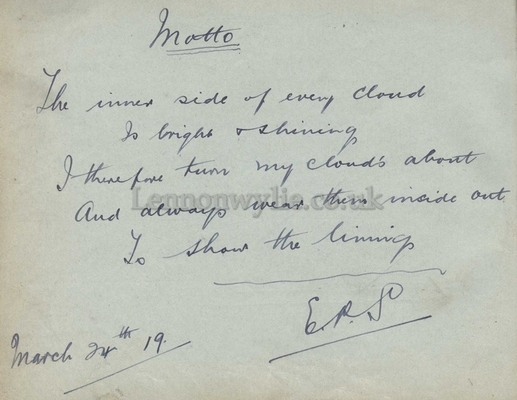 Motto
The inner side of every cloud
Is bright & shining
I therefore turn my clouds about
Lennonwylie.co.uk
And always wear them inside out
To show the lining
E.R.S
March 24th 19.